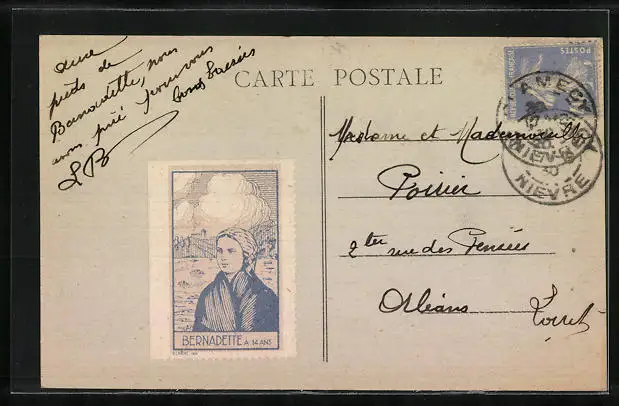 aux
pieds de
Bernadette, nous
avons prié pour vous
bons baisers
LB
CARTE POSTALE
POSTES
AMECY
NIEVRE
Madame et Mademoiselle
Poirier
2 ter rue des Pensées
Orléans Loiret
BERNADETTE A 14 ANS